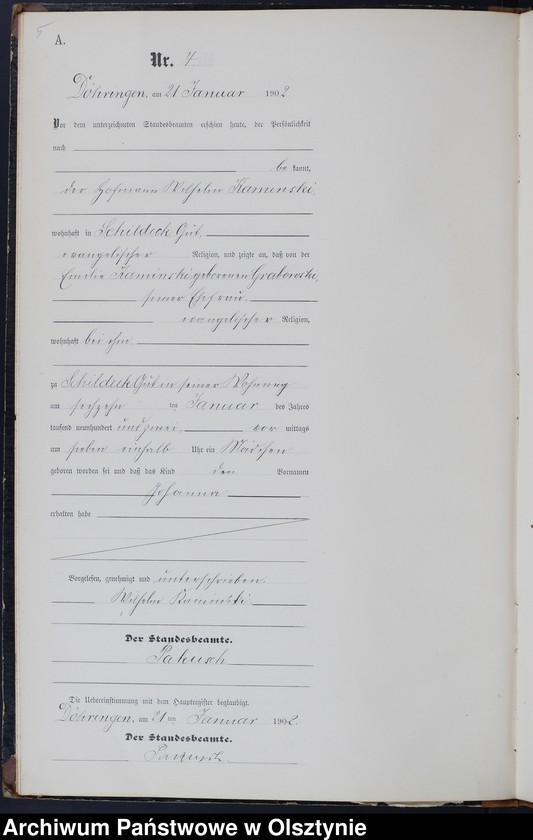 5
A.
Nr. 4
Döhringen, am 21 Januar 1902.
Vor dem unterzeichneten Standesbeamten erschien heute, der Persönlichkeit
nach
be kannt,
der Hofmann Wilhelm Kaminski,
wohnhaft in Schildeck Gut,
evangelischer Religion, und zeigte an, daß von der
Emilie Kaminski, geborenen Grabowski,
seiner Ehefrau,
evangelischer Religion,
wohnhaft bei ihm
zu Schildeck Gut in seiner Wohnung
am sechzehn ten Januar des Jahres
tausend neunhundert und zwei vor mittags
um sieben einhalb Uhr ein Mädchen
geboren worden sei und daß das Kind den Vornamen
Johanna
erhalten habe
Vorgelesen, genehmigt und unterschrieben.
Wilhelm Kaminski
Der Standesbeamte.
Die Uebereinstimmung mit dem Hauptregister beglaubigt.
Döhringen, am 21 ten Januar 1902.
Der Standesbeamte.
Archiwum Państwowe w Olsztynie